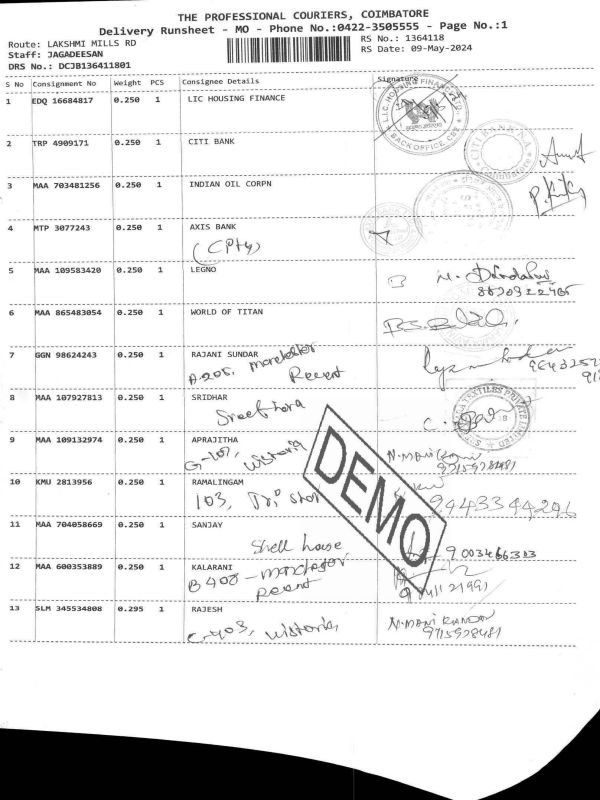 THE PROFESSIONAL COURIERS, COIMBATORE
Delivery Runsheet - MO - Phone No.:0422-3505555 - Page No.:1
Route: LAKSHMI MILLS RD
RS No.: 1364118
Staff: JAGADEESAN
RS Date: 09-May-2024
DRS No.: DCJB136411801
S No Consignment No Weight PCS Consignee Details Signature
1 EDQ 16684817 0.250 1 LIC HOUSING FINANCE
BACK OFFICE, CBE
2 TRP 4909171 0.250 1 CITI BANK
CITIBANK N.A.
3 MAA 703481256 0.250 1 INDIAN OIL CORPN
4 MTP 3077243 0.250 1 AXIS BANK
(CPty)
5 MAA 109583420 0.250 1 LEGNO
6 MAA 865483054 0.250 1 WORLD OF TITAN
7 GGN 98624243 0.250 1 RAJANI SUNDAR
A-205,
8 MAA 107927813 0.250 1 SRIDHAR
TEXTILES PRIVATE LIMITED
9 MAA 109132974 0.250 1 APRAJITHA
G-101, Wistoria
9715928481
10 KMU 2813956 0.250 1 RAMALINGAM
103,
9443344296
11 MAA 704058669 0.250 1 SANJAY
Shell house
9003466303
12 MAA 600353889 0.250 1 KALARANI
B 408 -
13 SLM 345534808 0.295 1 RAJESH
C-403, Wistoria
N.MANI KANDAN
9715928481
DEMO